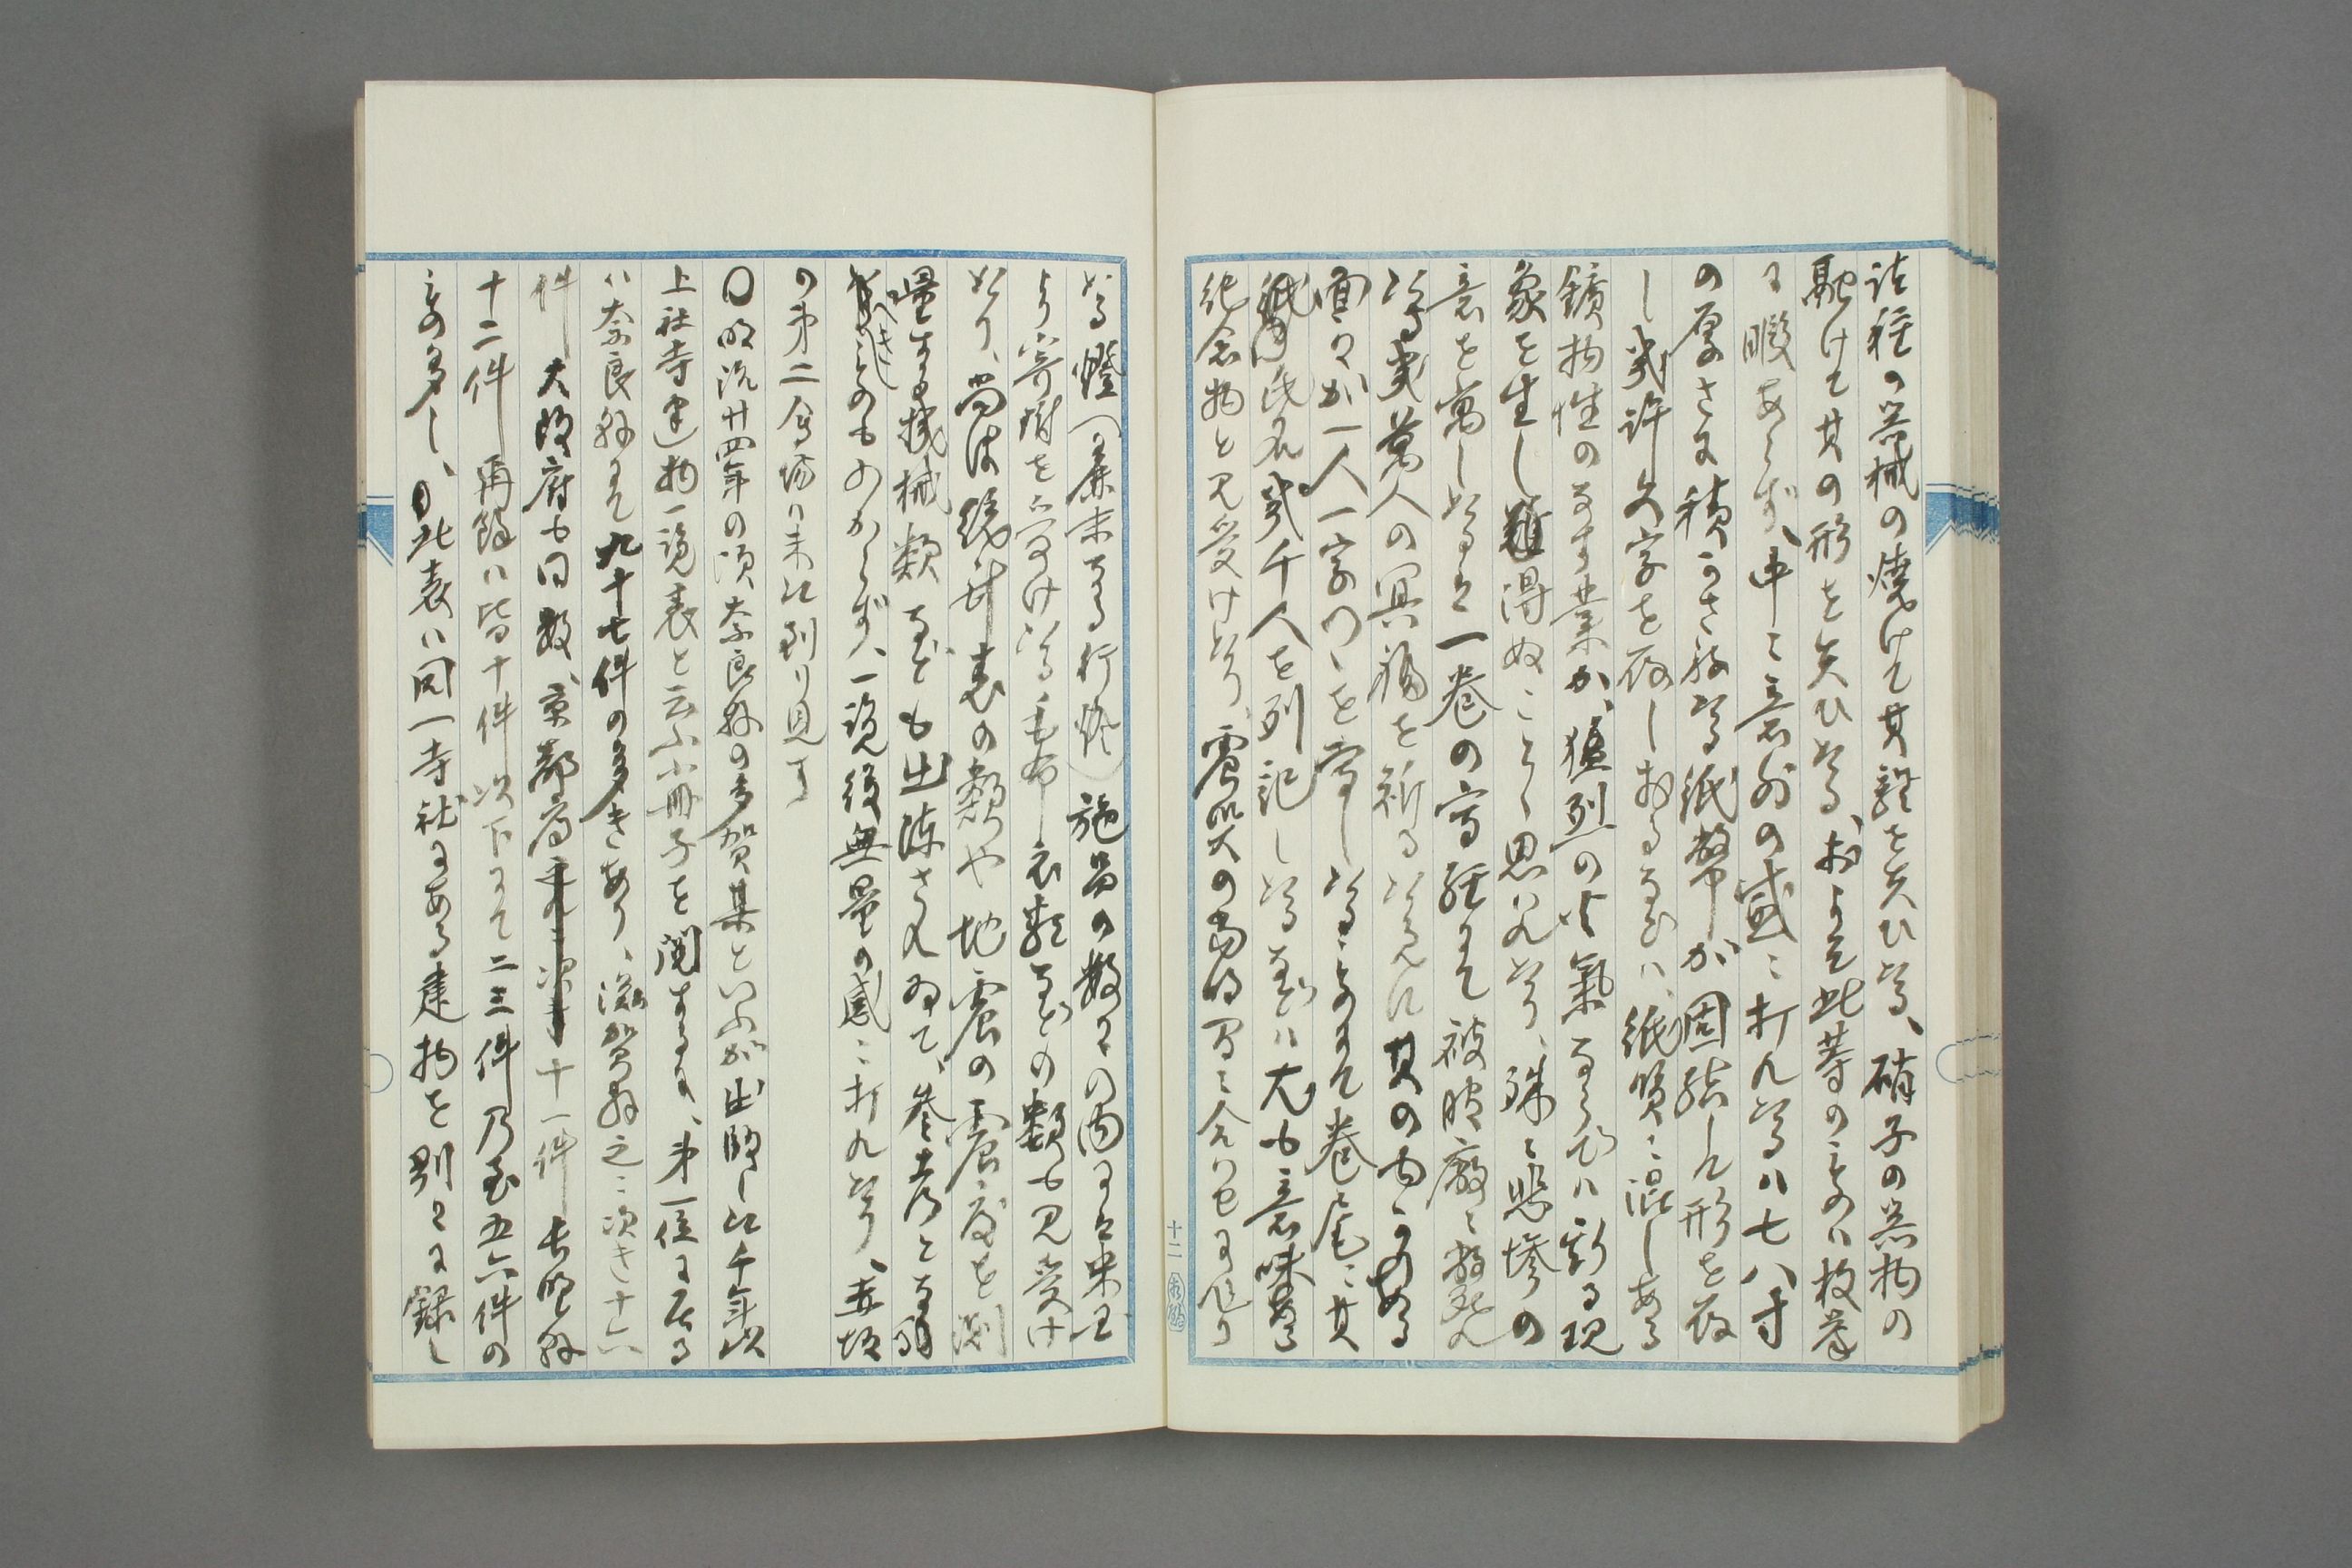 諸種の器械の焼けて其體を失ひたる、硝子の器物の
融けて其の形を失ひたる、およそ此等のものハ枚挙
に暇あらず、中に意外の感に打れたるハ七八寸
の厚さに積かさねたる紙幣が固結して形を存
し幾許文字を存しおるなど、ハ、紙質に混しある
鑛物性のなす業か、猛烈の火氣ならでハ斯る現
象を生し難得ぬことゝ思ハれたり、殊に悲惨の
意を寓したるは一巻の写経にて被服廠に横死
したる幾萬人の冥福を祈る為に其の内のある
面々が一人一字つゝを写したるものにて巻尾に其
氏名幾千人を列記したるなどハ尤も意味ある
紀念物と見受けたり、震災の当時
たる燈（粗末なる行燈）施品の数々の内には米国
より寄附を受けたる毛布衣類などの類も見受け
たり、尚ほ統計表の類や地震の震度を測
量する機械類なども出陳されゐて、参考となる
べきもの少からず、一覧後無量の感に打れたり、赤坂
の第二会場ハ未に到り見す
〇明治廿四年の頃奈良縣の多賀某といふが出版し千年以
上社寺建物一覧表と云ふ小冊子を閲するに、第一位に居る
ハ奈良縣にて九十七件の多きあり、滋賀縣之に次き十六
件 大阪府も同数、京都府 十一件 長野縣
十二件 再餘ハ皆十件以下にて二三件乃至五六件の
もの多し、〇此表ハ同一寺社にある建物を別々に録し
十二